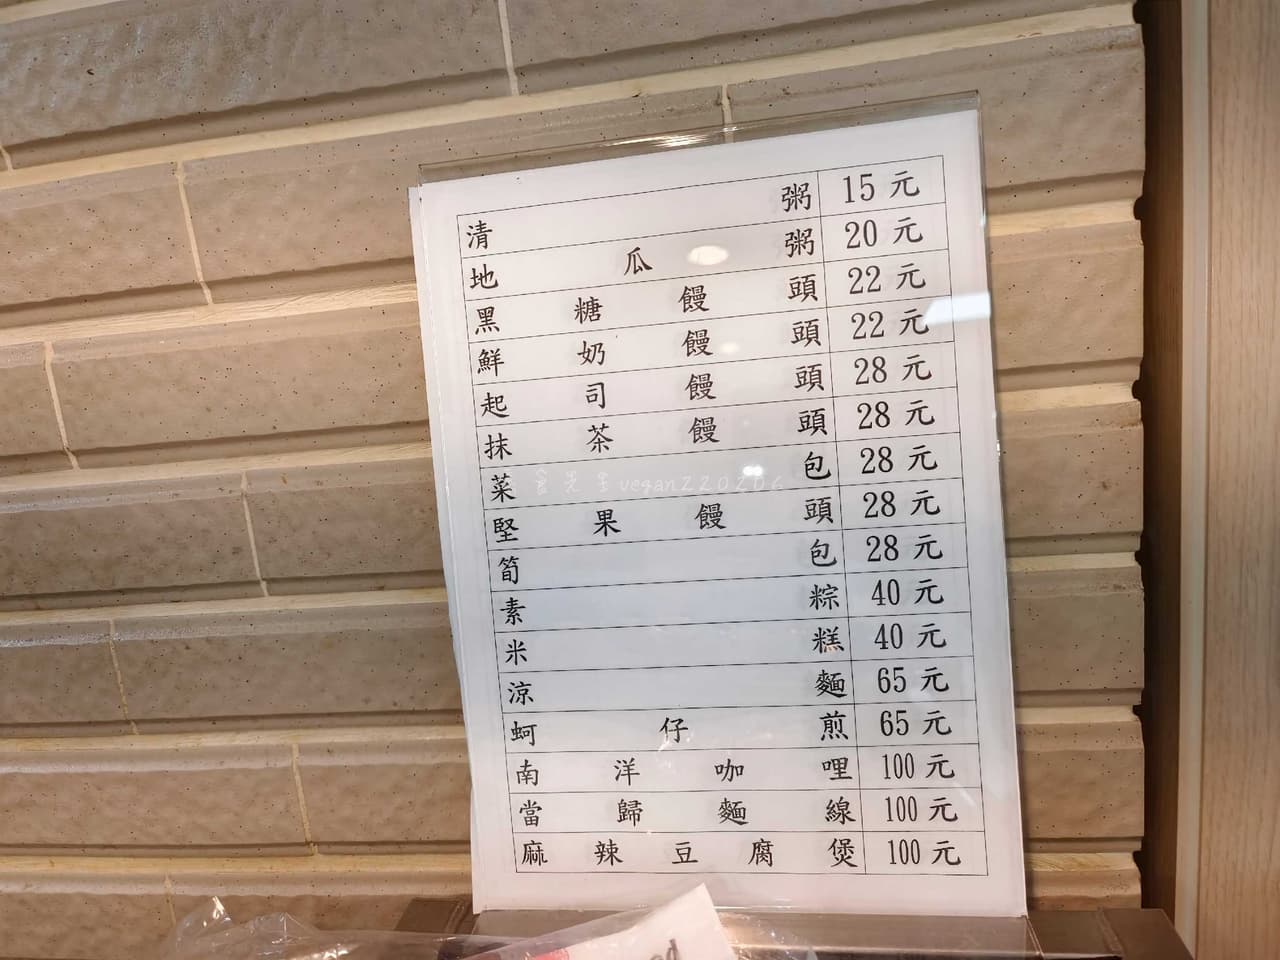 清粥 15元
地瓜粥 20元
黑糖饅頭 22元
鮮奶饅頭 22元
起司饅頭 28元
抹茶饅頭 28元
菜包 28元
堅果饅頭 28元
筍包 28元
素粽 40元
米糕 40元
涼麵 65元
蚵仔煎 65元
南洋咖哩 100元
當歸麵線 100元
麻辣豆腐煲 100元